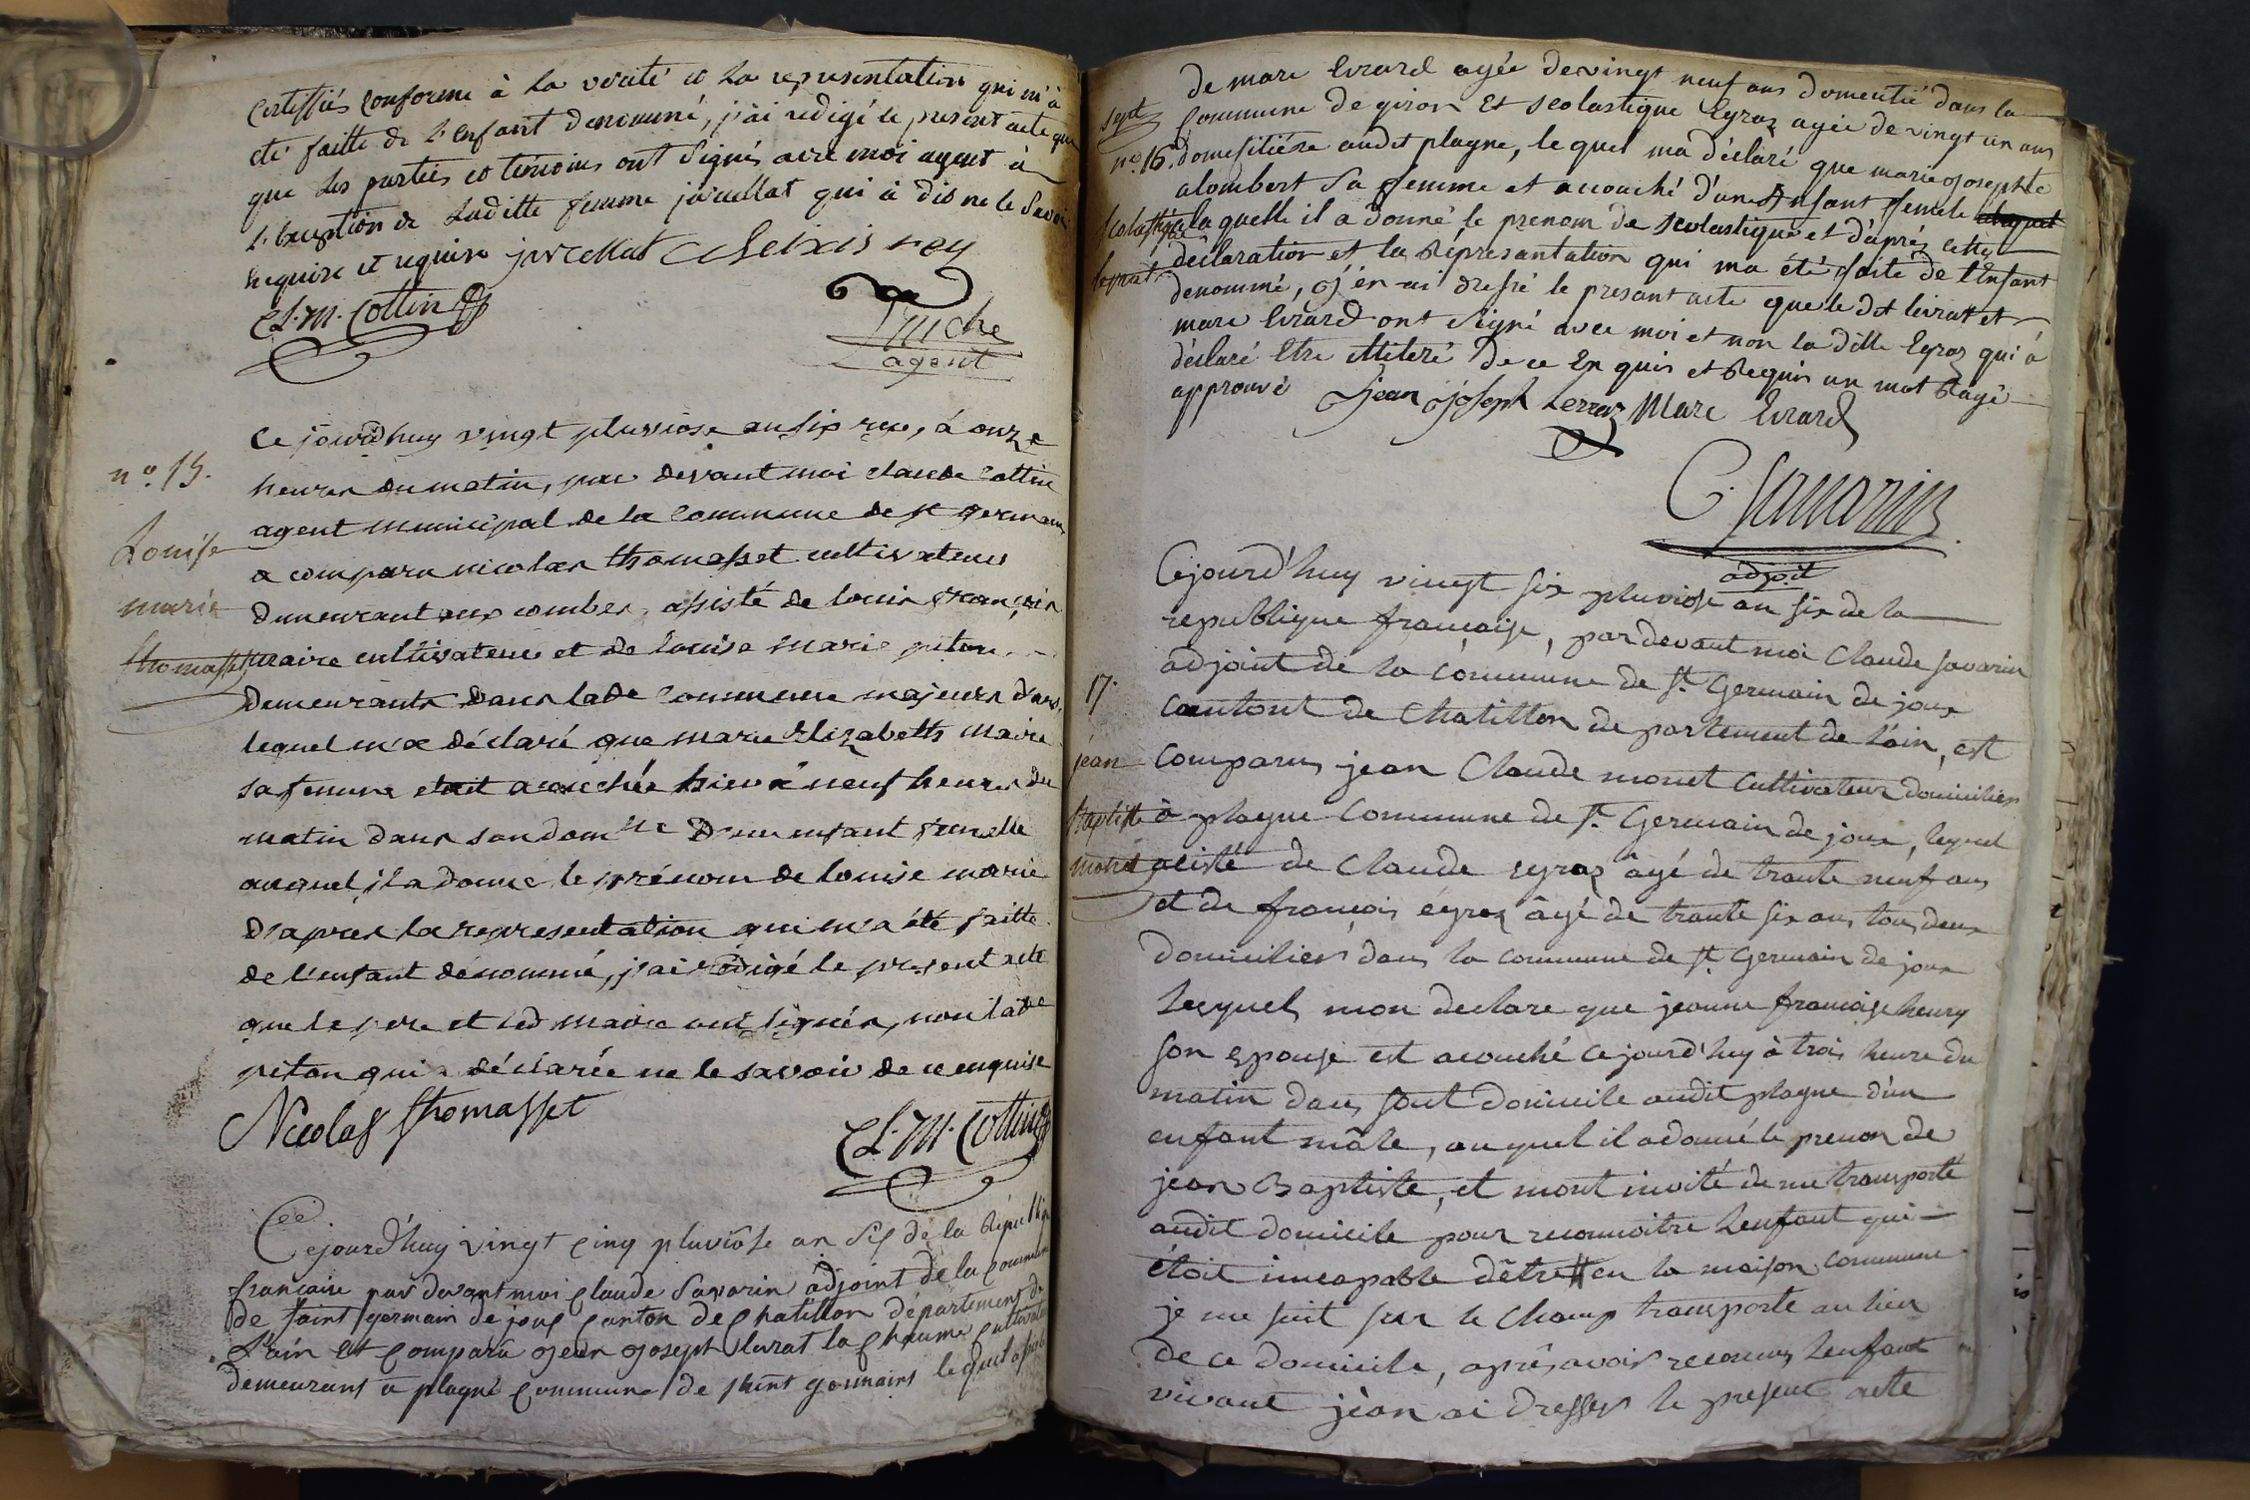 certiffiés conforme à la verité et la representation qui m'à
été faitte de l'enfant denommé, j'ai redigé le present acte que
que les parties et temoins ont signés avec moi agent à
l'exception de laditte femme javellat qui à dis ne le savoir
enquise et requise javellat rey
Cl. M. Cottin
Tuche
agent
n°. 15.
Louise
marie
thomasset
Ce jourdhuy vingt pluviose an six rue, à onze
heures du matin, par devant moi claude Cottin
agent municipal de la commune de st germain
a comparu nicolas thomasset cultivateur
demeurant aux combes, assisté de louis françois
maire cultivateur et de louise marie piton
demeurants dans lade commune majeurs d'ans,
lequel m'a déclaré que marie Elizabeth maire
sa femme etait accouchée hier à neuf heures du
matin dans son domlle d'un enfant femelle
auquel il a donné le prénom de louise marie
d'apres la representation qui m'a été faitte
de l'enfant dénommé, j'ai rédigé le present acte
que le pere et led maire ont signés, non lade
piton qui a déclarée ne le savoir de ce enquise
Nicolas thomasset
Cl. M. Cottin
Cejourd'huy vingt cinq pluviôse an six de la République
francaise par devant moi claude Savarin adjoint de la commune
de saint germain de joux canton de chatillon département de
L'ain est compara jean joseph levrat la chaume cultivateur
demeurant a plagne commune de saint germains lequel assisté
de marc Evrard agée de vingt neuf ans domentié dans la
sept
commune de giron Et scolastique Eyraz agée de vingt un ans
n°. 16. domesitiére audit plagne, le quel ma déclaré que marie josephte
alombert sa femme et acouché d'une Enfant femele
Scolastique laquelle il a donné le prenom de scolastique et d'aprés cette
levrat déclaration et la Réprésantation qui ma été faite de l'Enfant
denommé, j'en ai dressé le presant acte que le dit levrat et
marc Evrard ont signé avec moi et non la ditte Eyraz qui à
déclaré Etre illiteré de ce Enquis et Requis un mot Rayé
approuvé jean joseph Lerraz Marc Evrard
C. Savarin
adjoit
17.
jean
Baptiste
monet
Cejourd'huy vingt six pluviose an six de la
republique française, par devant moi Claude savarin
adjoint de la commune de st. Germain de joux
cantont de Chatillon de partement de l'ain, est
comparus jean Claude monet cultivateur domicilier
à plagne commune de st. Germain de joux, lequel
acisté de Claude eyraz âgé de trante neuf ans
et de françois eyraz âgé de trante six ans tous deux
domicilier dans la commune de st. Germain de joux
lesquels mon declare que jeanne françoise henry
son epouse est acouché cejourd'huy à trois heure du
matin dans sont domicile audit plagne d'un
enfant mâle, au quel il a donné le prenon de
jean Baptiste, et mont invité de me transporté
audit domicile pour reconnoitre lenfant qui
étoit incapable dêtre en la maison commune
je me suit sur le champ transporte au lieu
de ce domicile, aprés avoir reconnus lenfant
vivant jéan ai dresser le present acte